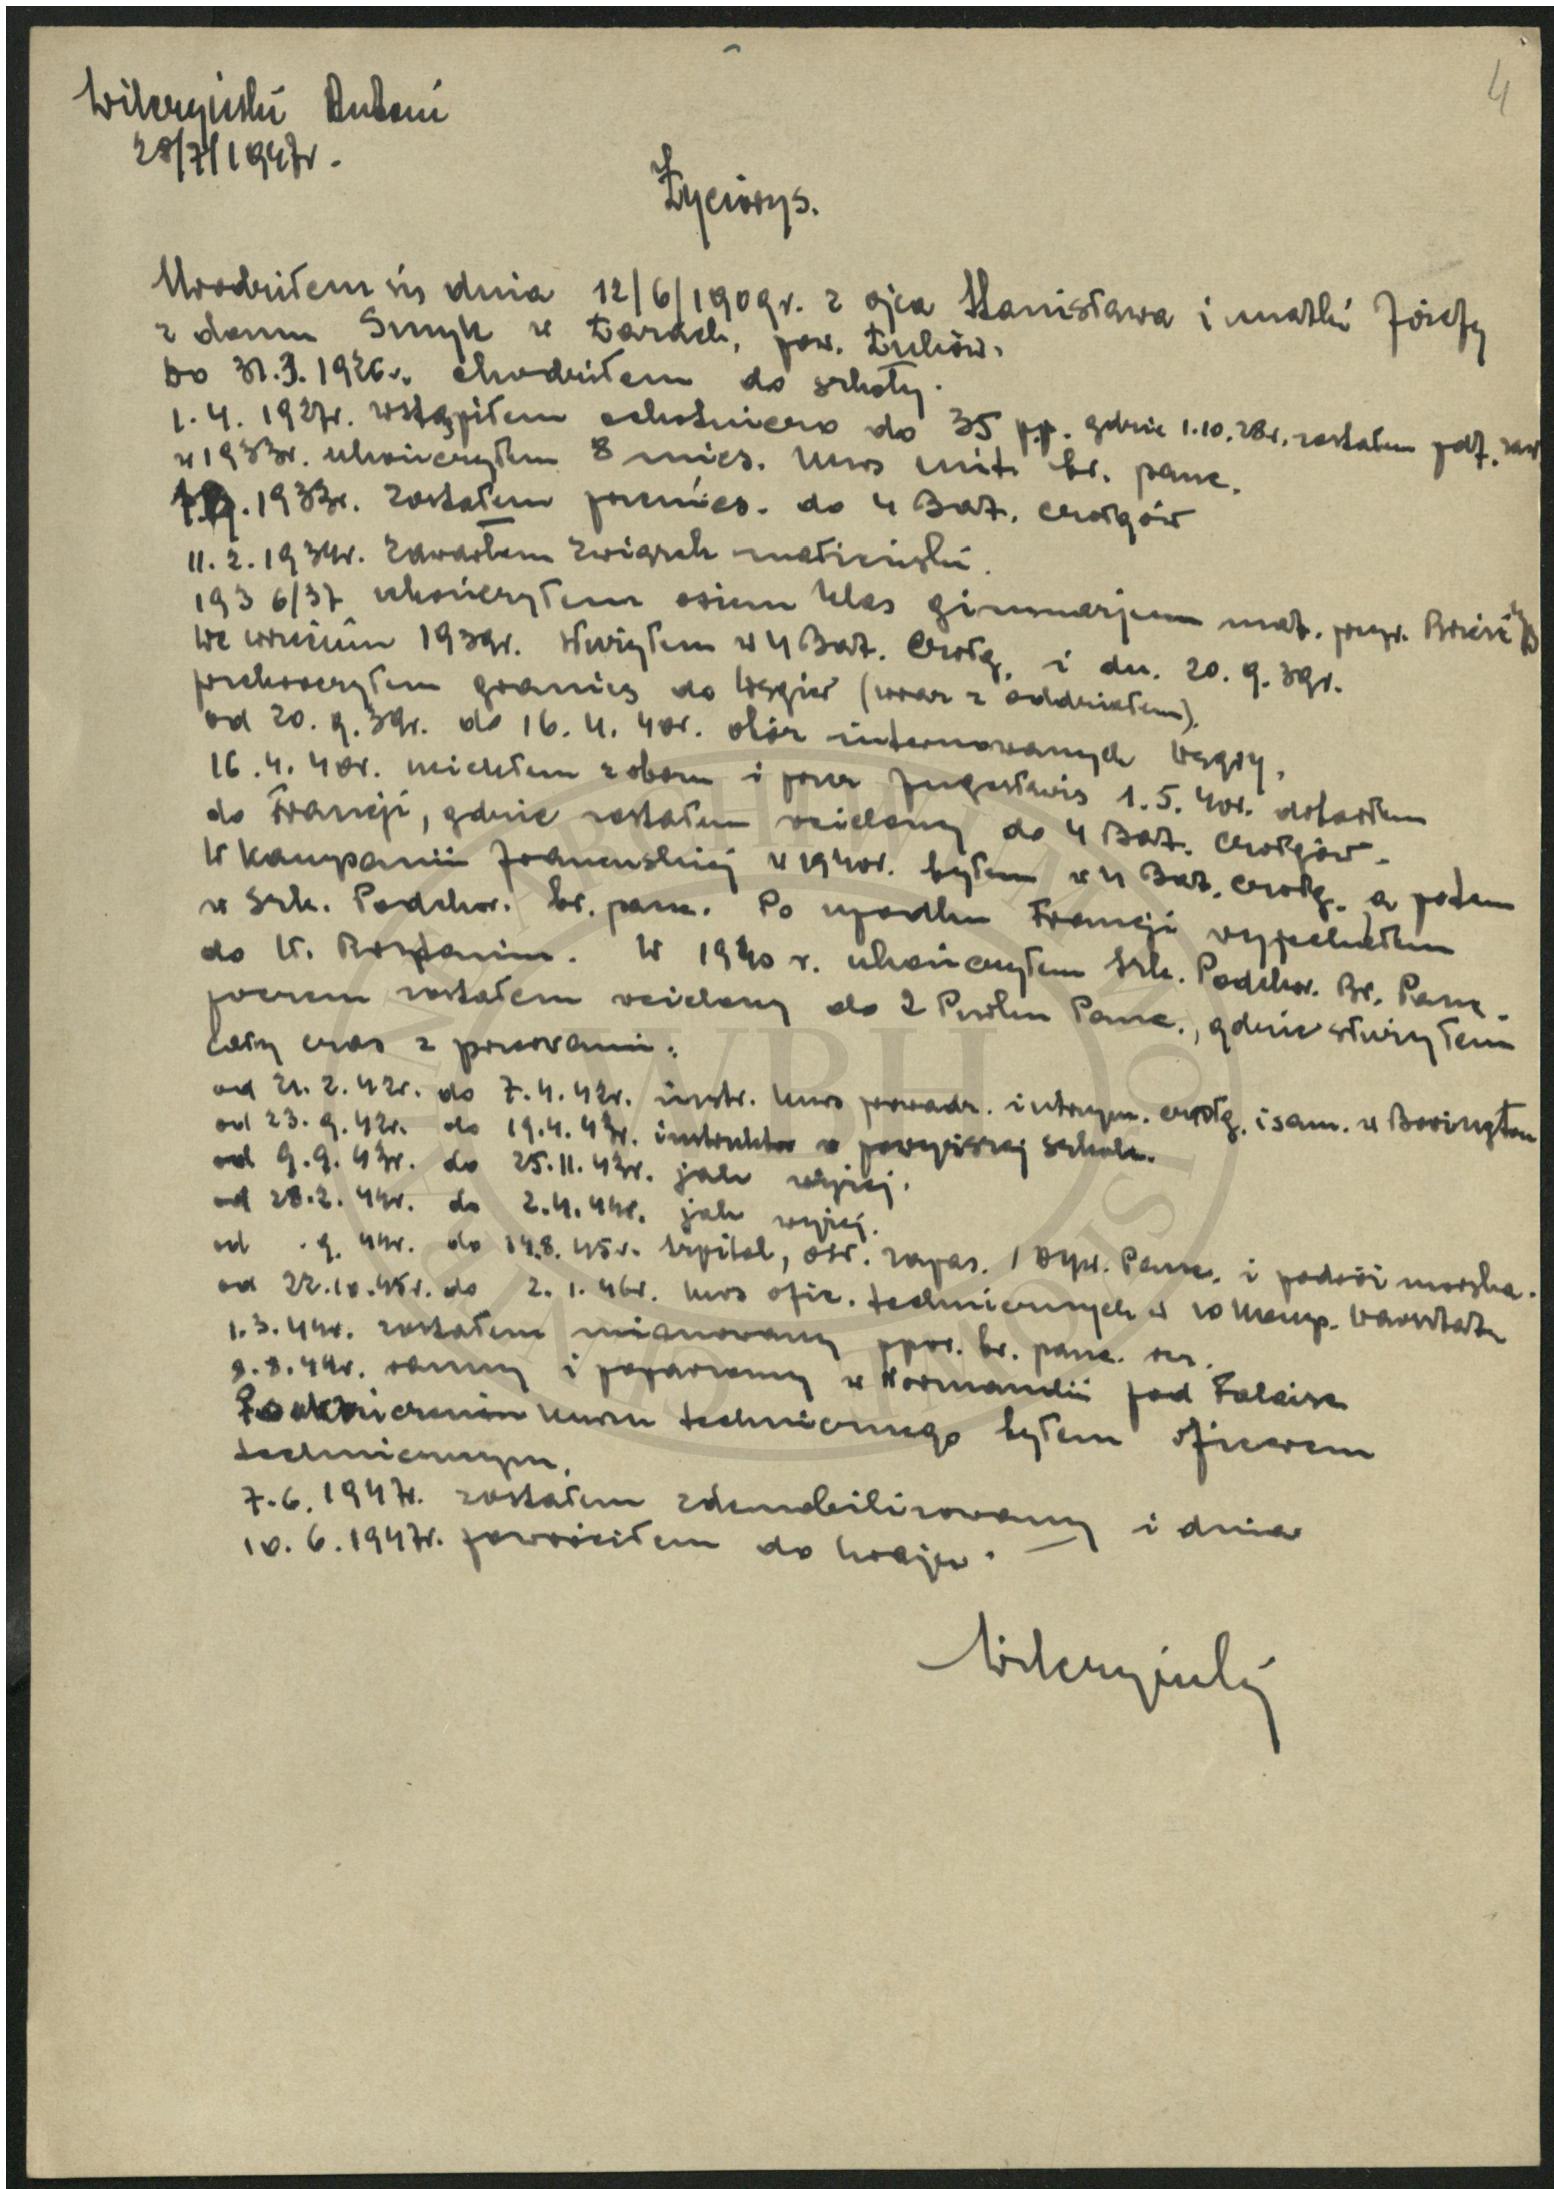 4
Wilczyński Antoni
28/7/1947r.
Życiorys.
Urodziłem się dnia 12/6/1909r. z ojca Stanisława i matki Józefy
z domu Smyk w Żarach, pow. Łuków.
Do 31.3.1926r. chodziłem do szkoły.
1.4.1927r. wstąpiłem ochotniczo do 35 p.p. gdzie 1.10.28r. zostałem pdf. zaw
w 1933r. ukończyłem 8 mies. kurs unit. br. panc.
1933r. zostałem przenies. do 4 Bat. czołgów
11.2.1934r. zawarłem związek małżeński.
1936/37 ukończyłem osiem klas gimnazjum mat. przyr. Brześć
We wrześniu 1939r. służyłem w 4 Bat. Czołg. i dn. 20.9.39r.
przekroczyłem granicę do Węgier (wraz z oddziałem).
od 20.9.39r. do 16.4.40r. obóz internowanych Węgry,
16.4.40r. uciekłem z obozu i przez Jugosławię 1.5.40r. dotarłem
do Francji, gdzie zostałem wcielony do 4 Bat. Czołgów.
W kampanii francuskiej w 1940r. byłem w 4 Bat. czołg. a potem
w Szk. Podchor. br. panc. Po upadku Francji wyjechałem
do W. Brytanii. W 1940 r. ukończyłem Szk. Podchor. Br. Panc.
poczem zostałem wcielony do 2 Pułku Panc., gdzie służyłem
cały czas z przerwami:
od 21.2.42r. do 7.4.42r. instr. kurs prowadz. i utrzym. czołg. i sam. w Bovington
od 23.9.42r. do 19.4.43r. instruktor w powyższej szkole.
od 9.9.43r. do 25.11.43r. jak wyżej.
od 28.2.44r. do 2.4.44r. jak wyżej.
od .9.44r. do 14.8.45r. szpital, ośr. zapas. 1 Dyw. Panc. i podróż morska.
od 22.10.45r. do 2.1.46r. kurs ofic. technicznych w 10 komp. Warsztat.
1.3.44r. zostałem mianowany ppor. br. panc. rez.
8.8.44r. ranny i poparzony w Normandii pod Falaise
Po ukończeniu kursu technicznego byłem oficerem
technicznym.
7.6.1947r. zostałem zdemobilizowany i dnia
10.6.1947r. powróciłem do kraju. —
Wilczyński
WBH